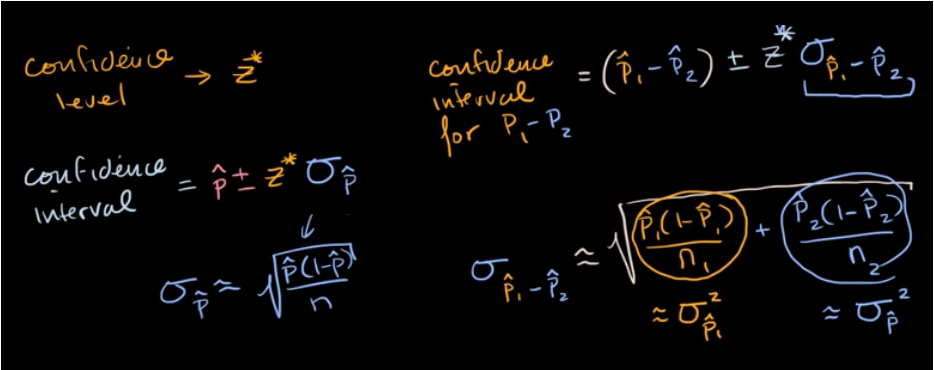 confidence level → z*
confidence interval = p̂ ± z* σ_p̂
σ_p̂ ≈ √(p̂(1-p̂)/n)
confidence interval for P₁-P₂ = (p̂₁-p̂₂) ± z* σ_p̂₁-p̂₂
σ_p̂₁-p̂₂ ≈ √(p̂₁(1-p̂₁)/n₁ + p̂₂(1-p̂₂)/n₂)
≈ σ²_p̂₁
≈ σ²_p̂